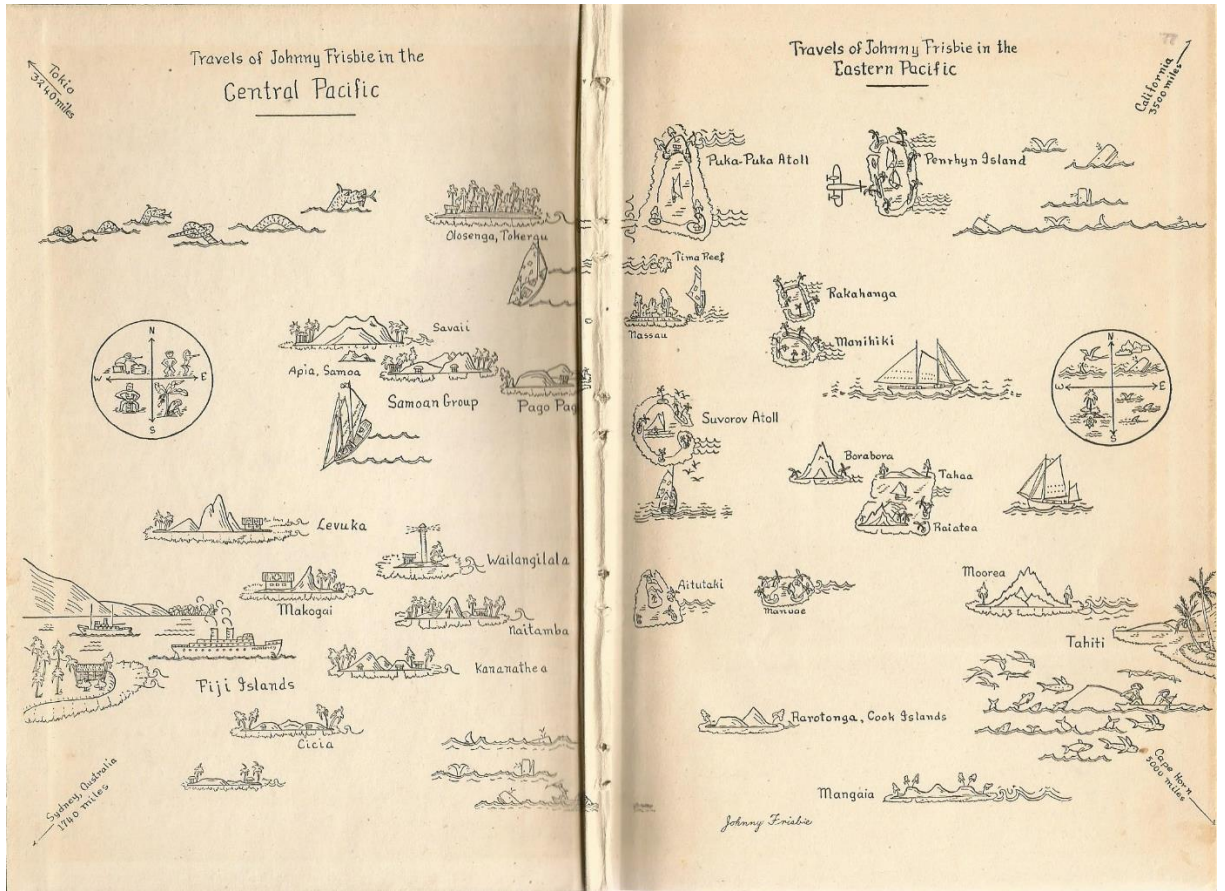 Travels of Johnny Frisbie in the
Central Pacific
Tokio
3240 miles
Olosenga, Tokergu
N
W
E
S
Savaii
Apia, Samoa
Samoan Group
Pago Pag
Levuka
Wailangilala
Makogai
Naitamba
Kananathea
Fiji Islands
Cicia
Sydney, Australia
1740 miles
Travels of Johnny Frisbie in the
Eastern Pacific
77
California
3500 miles
Puka-Puka Atoll
Penrhyn Island
Tima Reef
Nassau
Rakahanga
Manihiki
N
W
E
S
Suvorov Atoll
Borabora
Tahaa
Raiatea
Aitutaki
Manuae
Moorea
Tahiti
Rarotonga, Cook Islands
Cape Horn
5000 miles
Mangaia
Johnny Frisbie